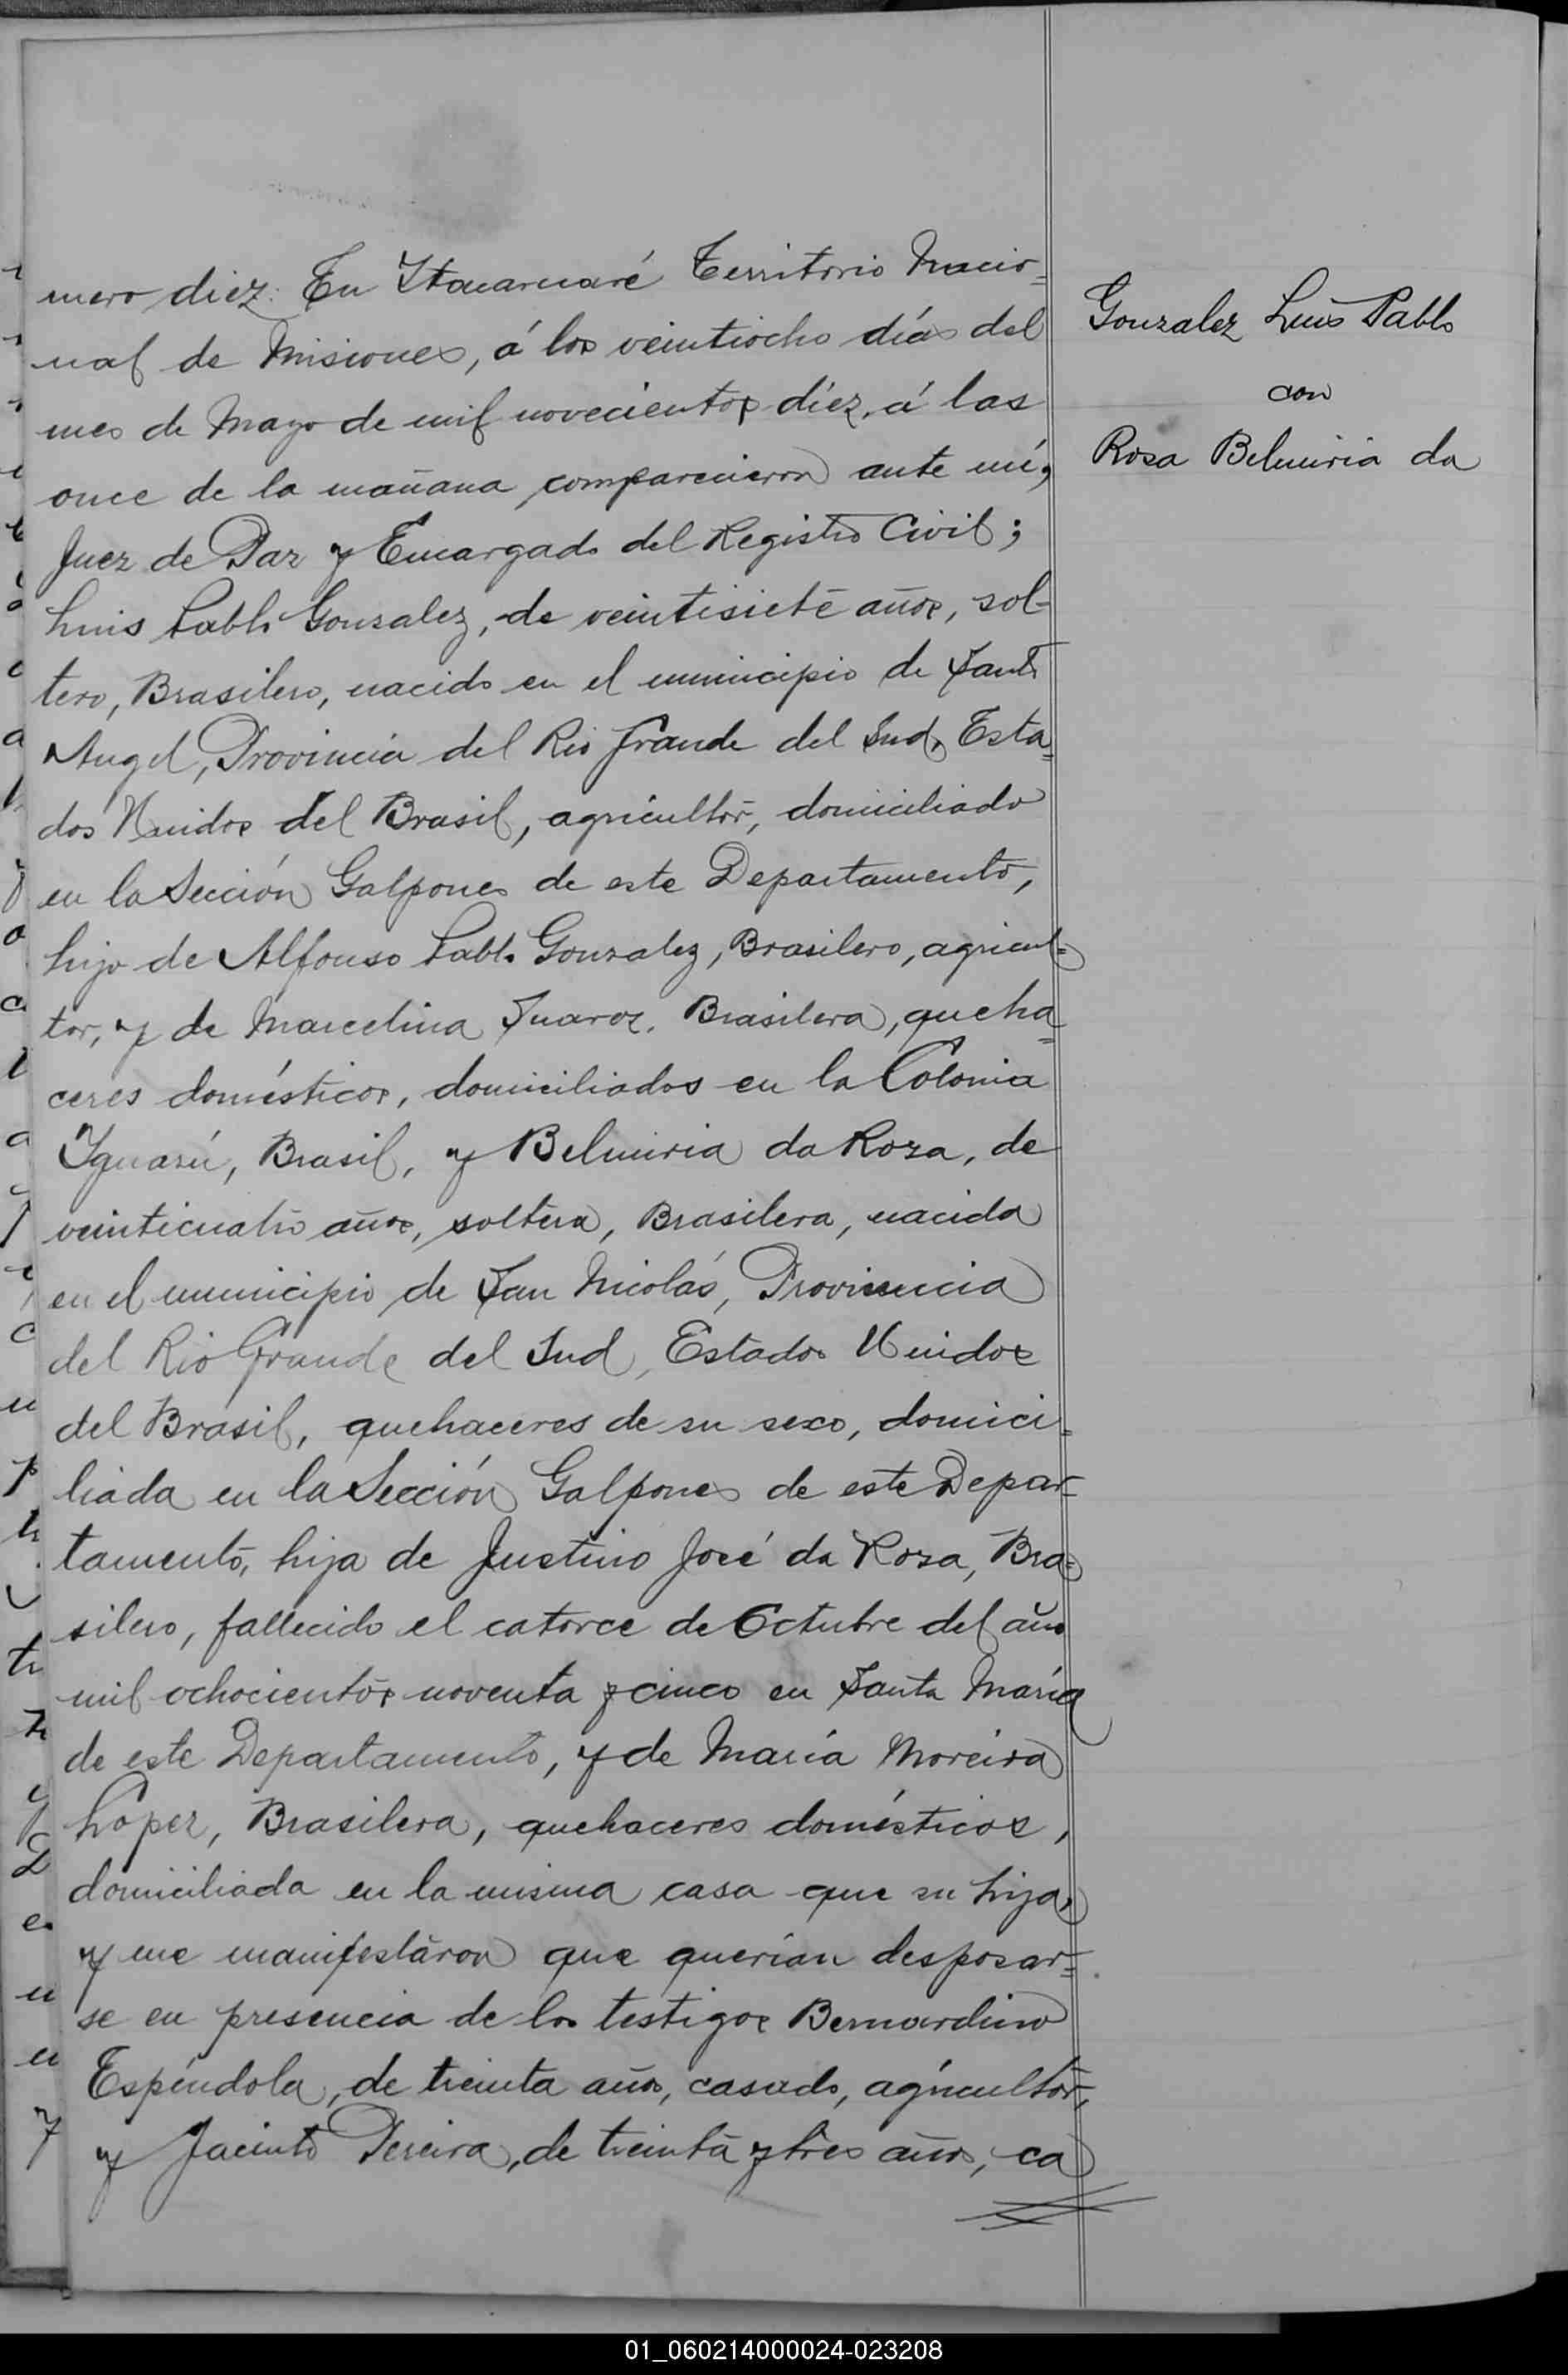 mero diez: En Itacaruaré Territorio Nacio=
nal de Misiones, á los veintiocho días del
mes de Mayo de mil novecientos diez, á las
once de la mañana comparecieron ante mí,
Juez de Paz y Encargado del Registro Civil;
Luis Pablo Gonzalez, de veintisiete años, sol-
tero, Brasilero, nacido en el municipio de Santo
Angel, Provincia del Rio Grande del Sud, Esta=
dos Unidos del Brasil, agricultor, domiciliado
en la Sección Galpones de este Departamento,
hijo de Alfonso Pablo Gonzalez, Brasilero, agricul=
tor, y de Marcelina Brasilera, queha=
ceres domésticos, domiciliados en la Colonia
Yguazú, Brasil, y Belmiria da Roza, de
veinticuatro años, soltera, Brasilera, nacida
en el municipio de San Nicolás, Provincia
del Rio Grande del Sud, Estados Unidos
del Brasil, quehaceres de su sexo, domici=
liada en la Sección Galpones de este Depar-
tamento, hija de Justino José da Roza, Bra=
silero, fallecido el catorce de Octubre del año
mil ochocientos noventa y cinco en Santa María
de este Departamento, y de María Moreira
Lopez, Brasilera, quehaceres domésticos,
domiciliada en la misma casa que su hija,
y me manifestaron que querían desposar=
se en presencia de los testigos Bernardino
Espíndola, de treinta años, casado, agricultor,
y Jacinto Pereira, de treinta y tres años, ca
Gonzalez Luis Pablo
con
Rosa Belmiria da
01_060214000024-023208